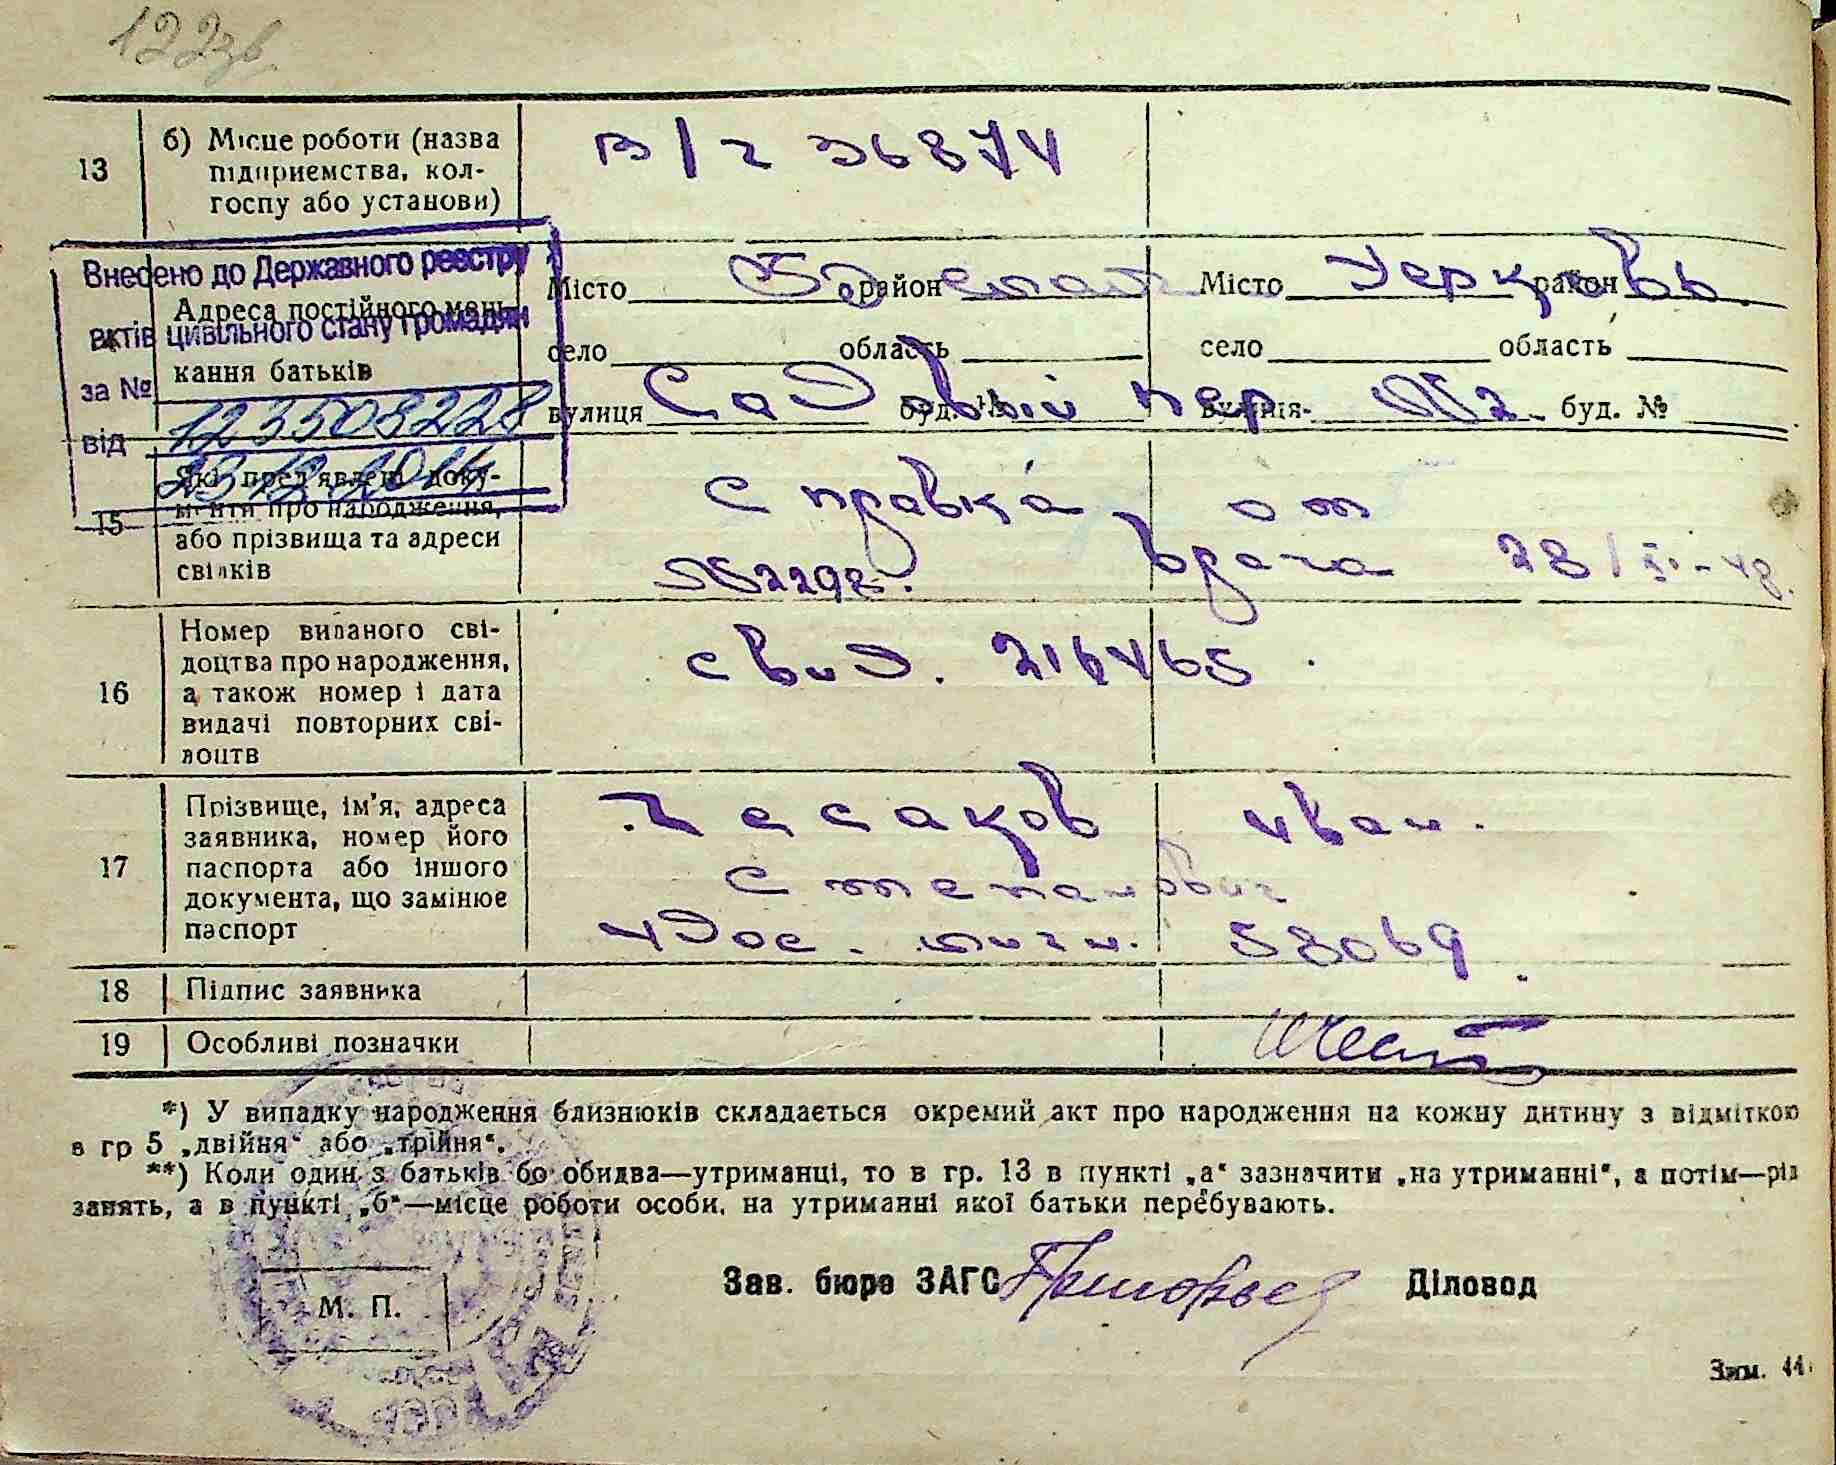 122зв.
13
б) Місце роботи (назва
підприємства, кол-
госпу або установи)
в/ч 36874
Внесено до Державного реєстру
актів цивільного стану громадян
за № 123508228
від
Адреса постійного меш-
кання батьків
Місто район
село область
вулиця Садовый буд. №
Місто район
село область
вулиця пер №2 буд. №
15
Які пред'явлені доку-
менти про народження,
або прізвища та адреси
свідків
Справка от
№2298. врача 28/XI-48.
16
Номер виданого сві-
доцтва про народження,
а також номер і дата
видачі повторних сві-
доцтв
свид. 216465.
17
Прізвище, ім'я, адреса
заявника, номер його
паспорта або іншого
документа, що замінює
паспорт
Чесаков Иван.
Степанович
удос. личн. 58069.
18
Підпис заявника
19
Особливі позначки
*) У випадку народження близнюків складається окремий акт про народження на кожну дитину з відміткою
в гр 5 „двійня“ або „трійня“.
**) Коли один з батьків бо обидва—утриманці, то в гр. 13 в пункті „а“ зазначити „на утриманні“, а потім—рід
занять, а в пункті „б“—місце роботи особи, на утриманні якої батьки перебувають.
М. П.
Зав. бюро ЗАГС
Діловод
Зам. 44